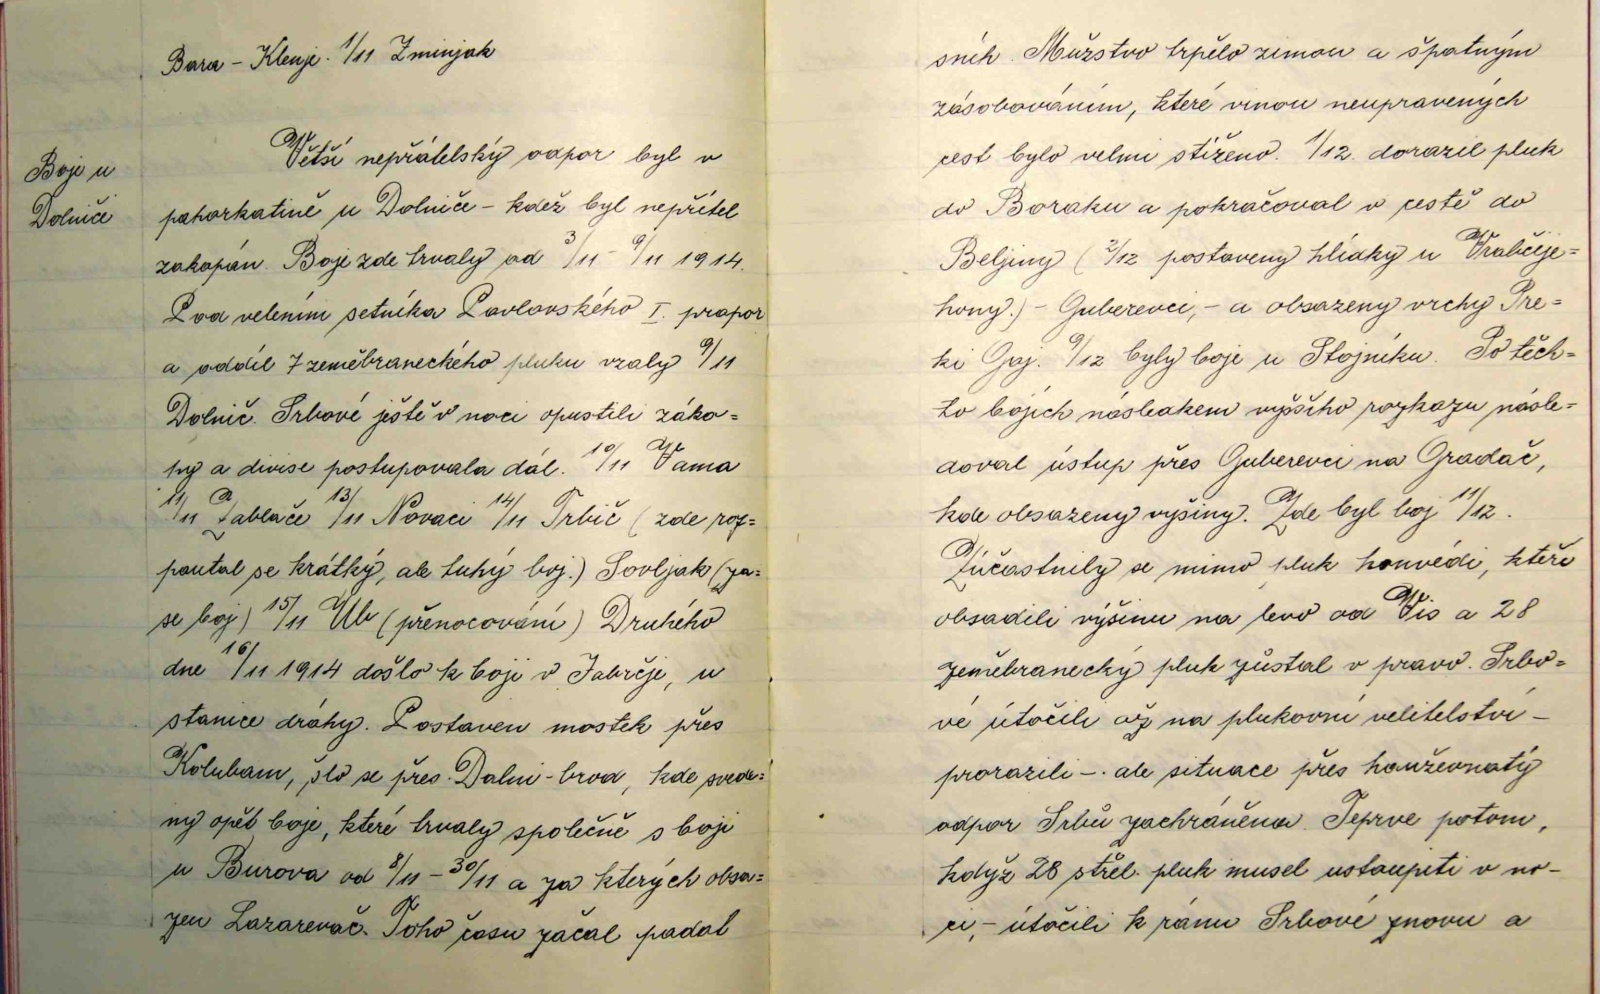 Bara – Klenje. 1/11 Zminjak
Boje u
Dolniče
Větší nepřátelský odpor byl v
pahorkatině u Dolniče – kdež byl nepřítel
zakopán. Boje zde trvaly od 3/11 – 9/11 1914.
Pod velením setníka Pavlovského I. prapor
a oddíl 7 zeměbraneckého pluku vzaly 9/11
Dolnič. Srbové ještě v noci opustili záko=
py a divise postupovala dál. 10/11 Vama
11/11 Zablače 13/11 Novaci 14/11 Trbič (zde roz=
poutal se krátký, ale tuhý boj.) Sovljak (za=
se boj) 15/11 Ub (přenocování) Druhého
dne 16/11 1914 došlo k boji v Jabrčje, u
stanice dráhy. Postaven mostek přes
Kolubam, šlo se přes Dalni-brod, kde svede=
ny opět boje, které trvaly společně s boji
u Burova od 8/11 – 30/11 a za kterých obsa=
zen Lazarevač. Toho času začal padat
sníh. Mužstvo trpělo zimou a špatným
zásobováním, které vinou neupravených
cest bylo velmi stíženo. 1/12. dorazil pluk
do Boraku a pokračoval v cestě do
Beljiny (2/12 postaveny hlídky u Vrabčeje=
hony.) – Guberevci, – a obsazeny vrchy Pre=
ki Gaj. 9/12 byly boje u Stojníku. Po těch=
to bojích následkem vyššího rozkazu násle=
doval ústup přes Guberevci na Gradač,
kde obsazeny výšiny. Zde byl boj 11/12.
Zúčastnily se mimo pluk honvédi, kteří
obsadili výšinu na levo od Vis a 28
zeměbranecký pluk zůstal v pravo. Srbo=
vé útočili až na plukovní velitelství –
prorazili –. ale situace přes houževnatý
odpor Srbů zachráněna. Teprve potom,
když 28 střel. pluk musel ustoupiti v no-
ci, – útočili k ránu Srbové znovu a